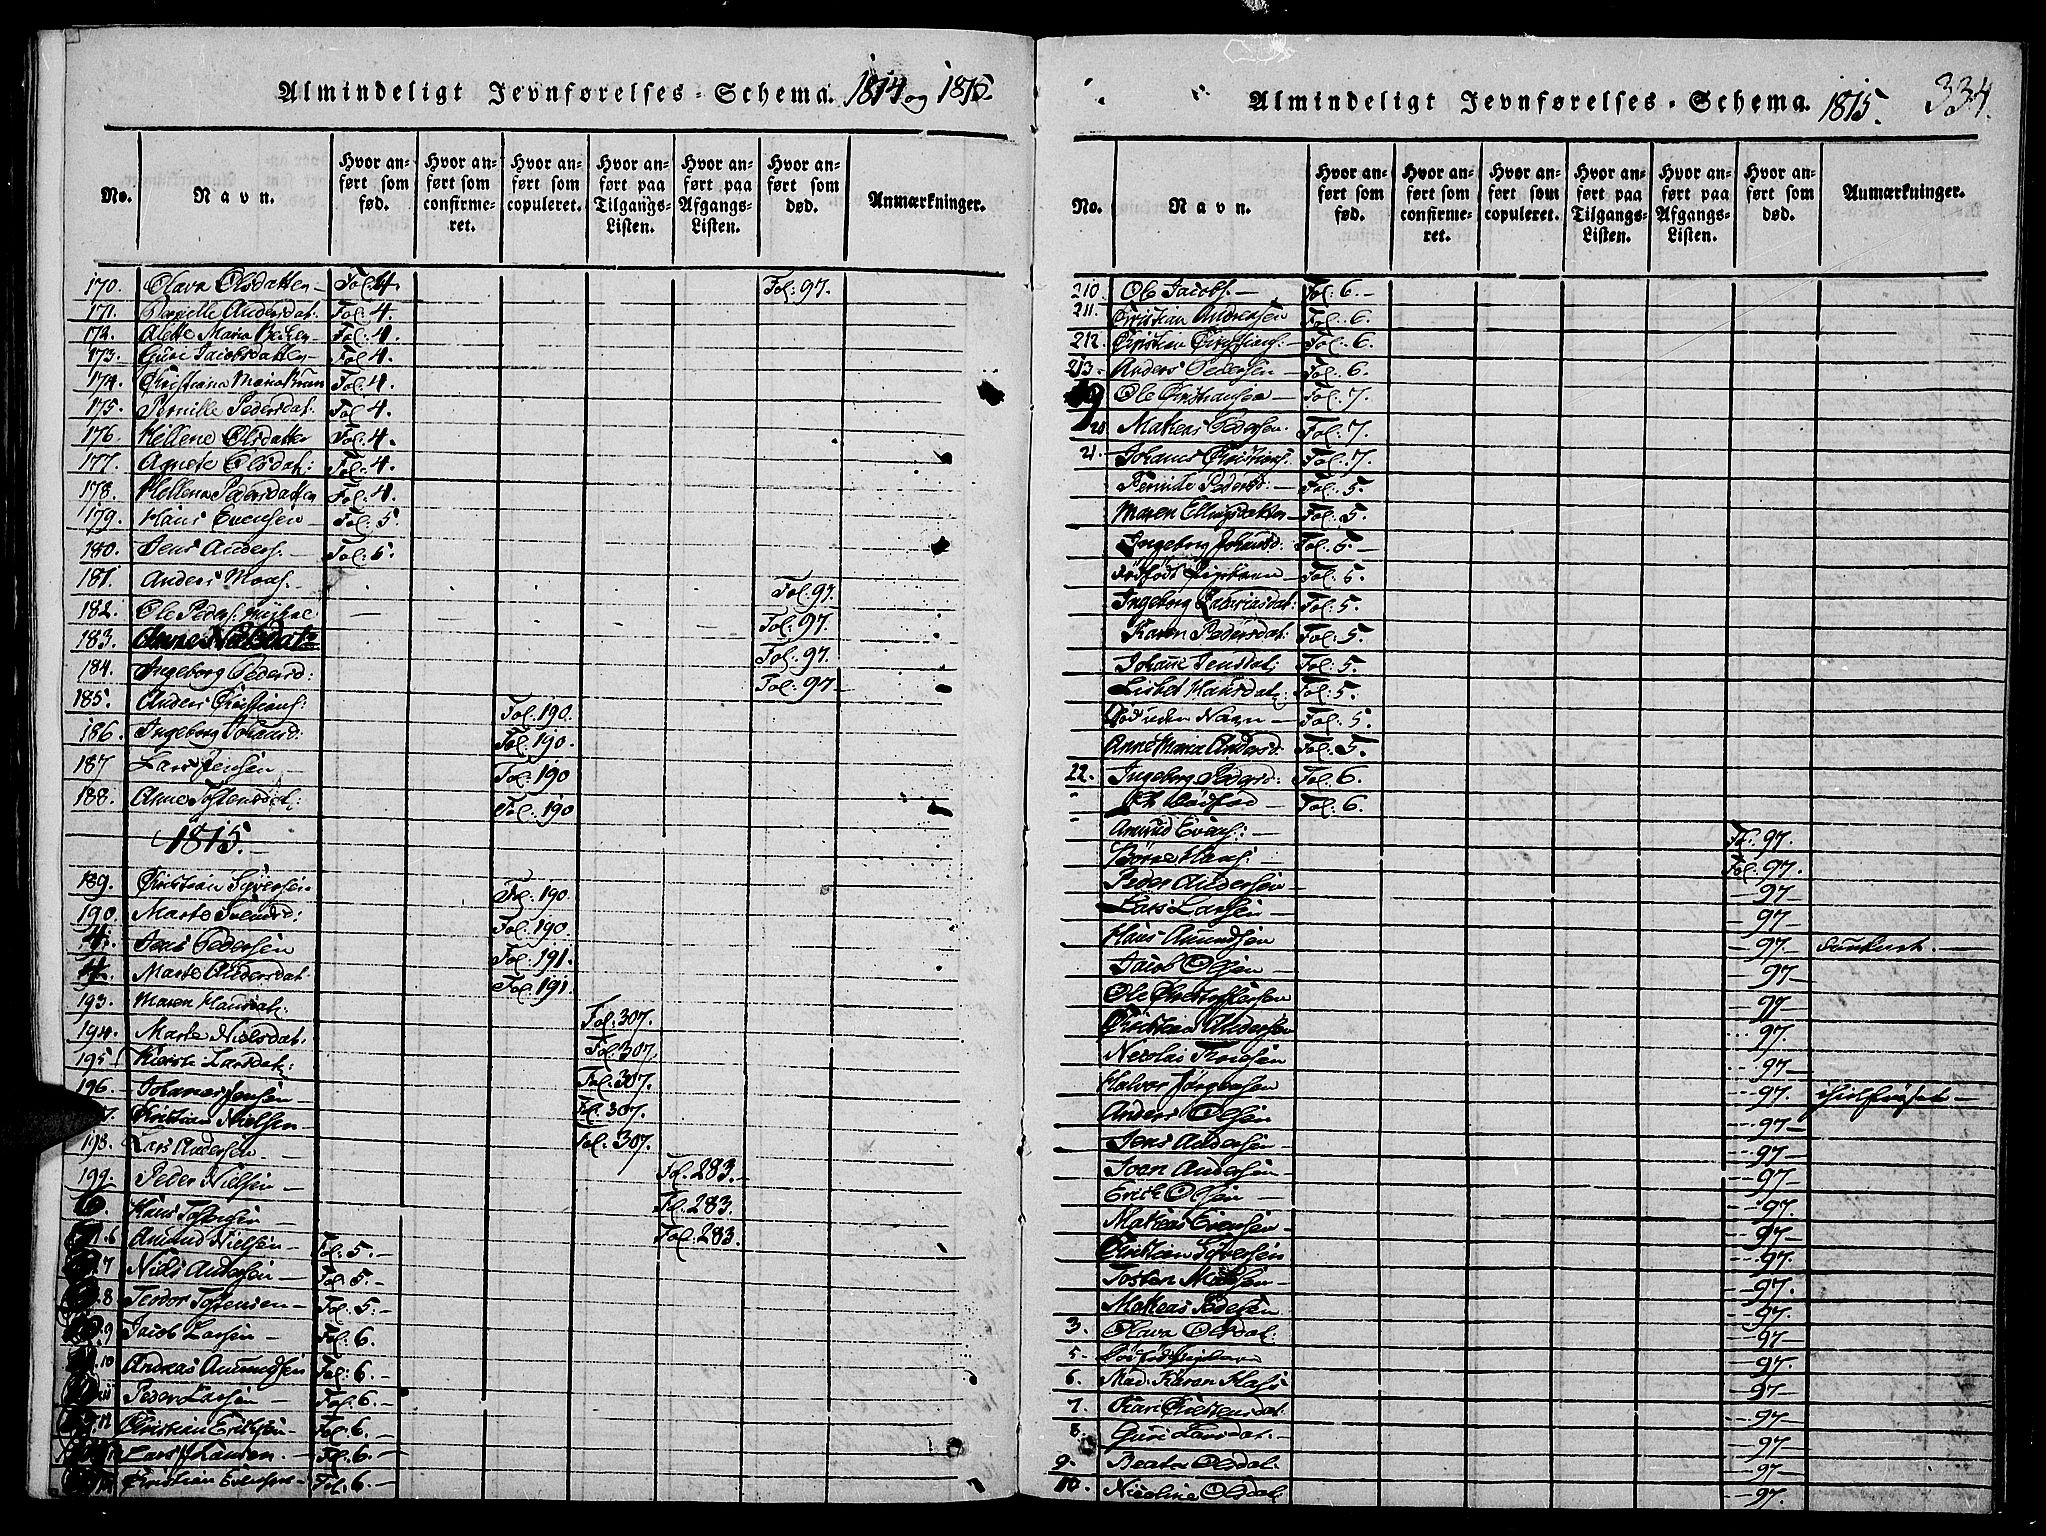 Almindeligt Jevnførelses-Schema. 1814 og 1815.
No. Navn. Hvor anført som fød. Hvor anført som confirmeret. Hvor anført som copuleret. Hvor anført paa Tilgangs-Listen. Hvor anført paa Afgangs-Listen. Hvor anført som død. Anmærkninger.
170. Olava Olsdatter Fol. 4. Fol: 97.
171. Pernille Andersdat: Fol. 4.
172. Alette Maria Fol: 4.
173. Guri Jacobsdatter Fol 4.
174. Christiana Maria Fol: 4.
175. Pernille Pedersdat. Fol 4.
176. Hellene Olsdatter Fol: 4.
177. Agnete Olsdat: Fol: 4.
178. Hellena Pedersdatter Fol: 4.
179. Hans Evensen Fol: 5.
180. Jens Anders. Fol: 6.
181. Anders Mons. Fol. 97.
182. Ole Peders. Fol: 97.
183. Anne Nielsdatr Fol: 97
184. Ingeborg Pedersd: Fol: 97
185. Anders Christians: Fol. 190.
186. Ingeborg Johansd: Fol: 190.
187 Lars Jensen Fol: 190
188. Anne Tostensdat: Fol: 190
1815.
189. Christian Syversen Fol: 190.
190. Marte Svendsd: Fol: 190
Jens Pedersen Fol: 191.
Marte Andersdat. Fol: 191.
193. Maren Hansdat: Fol. 307.
194. Marte Nielsdat. Fol: 307.
195 Marte Larsdat: Fol: 307.
196. Johannes Jensen Fol. 307.
Christian Nielsen Fol. 307.
198. Lars Andersen
199. Peder Nielsen Fol. 283.
Hans Tostensen Fol. 283.
6 Amund Nielsen Fol: 5. Fol: 283.
7 Niels Andersen Fol: 5.
8 Teodor Tostensen Fol. 5.
9 Jacob Larsen Fol: 6.
10 Andreas Amundsen Fol: 6.
11 Peder Larsen Fol. 6.
12 Christian Eriksen Fol: 6.
Lars Hansen Fol: 6.
Christian Evensen Fol: 6.
Almindeligt Jevnførelses-Schema. 1815. 334.
No. Navn. Hvor anført som fød. Hvor anført som confirmeret. Hvor anført som copuleret. Hvor anført paa Tilgangs-Listen. Hvor anført paa Afgangs-Listen. Hvor anført som død. Anmærkninger.
210. Ole Jacobs. Fol: 6.
211. Christian Andersen Fol: 6.
212. Christian Christians: Fol: 6.
213. Anders Pedersen Fol: 6.
Ole Christiansen Fol: 7.
20 Mathias Pedersen Fol: 7.
21. Johannes Christians. Fol: 7.
Pernille Pedersd: Fol: 5.
Maren Ellingsdatter Fol: 5.
Ingeborg Johansd: Fol: 5.
Dødfødt Pigebarn Fol: 5.
Ingeborg Zachariasdat: Fol: 5.
Karen Pedersdat: Fol: 5.
Johanne Jensdat: Fol: 5.
Lisbet Hansdatr Fol: 5.
Død uden Navn Fol: 5.
Anne Maria Andersd. Fol: 5.
22. Ingeborg Pedersd: Fol: 6.
Et Dødfød Fol: 6.
Amund Evens: Fol. 97.
Børne Hans: Fol: 97.
Peder Andersen 97
Lars Larsen 97
Hans Amundsen 97
Jacob Olsen 97
Ole Christophersen 97
Christian Andersen 97.
Nicolai 97
Halvor Jørgensen 97. ihielfrøset
Anders Olsen 97
Jens Andersen 97
Iver Andersen 97
Erich Olsen 97.
Mathias Evensen 97
Christian Syversen 97.
Tosten Nielsen 97.
Mathias Pedersen 97.
3. Olava Olsdat: 97
5. Dødfødt Pigebarn 97.
6. Mad. Karen 97
7. Kari 97
8. Guri Larsdat. 97
9. Beata Olsdat. 97
10. Nicoline Olsdat. 97.